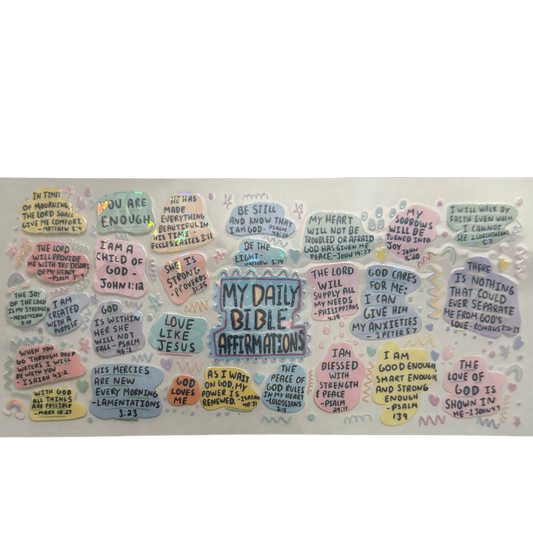 IN TIMES
OF MOURNING,
THE LORD SHALL
GIVE ME COMFORT.
- MATTHEW 5:4
YOU ARE
ENOUGH
HE HAS
MADE
EVERYTHING
BEAUTIFUL IN
HIS TIME -
ECCLESIASTES 3:11
BE STILL
AND KNOW THAT
I AM GOD - PSALM
46:10
MY HEART
WILL NOT BE
TROUBLED OR AFRAID
GOD HAS GIVEN ME
PEACE - JOHN 14:27
MY
SORROWS
WILL BE
TURNED INTO
JOY - JOHN
16:20
I WILL WALK BY
FAITH EVEN WHEN
I CANNOT
SEE 2 CORINTHIANS
5:7
THE LORD
WILL
PROVIDE
ME WITH THE DESIRES
OF MY HEART
- PSALM
I AM A
CHILD OF
GOD -
JOHN 1:12
SHE IS
STRONG
- PROVERBS
31:25
BE THE
LIGHT -
MATTHEW 5:14
MY DAILY
BIBLE
AFFIRMATIONS
THE LORD
WILL
SUPPLY ALL
MY NEEDS
- PHILIPPIANS
GOD CARES
FOR ME;
I CAN
GIVE HIM
MY ANXIETIES
- 1 PETER 5:7
THERE
IS NOTHING
THAT COULD
EVER SEPARATE
ME FROM GOD'S
LOVE - ROMANS
THE JOY
OF THE LORD
IS MY STRENGTH
NEHEMIAH
8:10
I AM
CREATED
WITH A
PURPOSE
GOD
IS WITHIN
HER SHE
WILL NOT
FALL - PSALM
46:5
LOVE
LIKE
JESUS
WHEN YOU
GO THROUGH DEEP
WATERS I WILL
BE WITH YOU
- ISAIAH 43:2
HIS MERCIES
ARE NEW
EVERY MORNING
- LAMENTATIONS
3:23
GOD
LOVES
ME
AS I WAIT
ON GOD, MY
POWER IS
RENEWED. - ISAIAH
40:31
THE
PEACE OF
GOD RULES
IN MY HEART
- COLOSSIANS
3:15
I AM
BLESSED
WITH
STRENGTH
& PEACE
- PSALM
29:11
I AM
GOOD ENOUGH,
SMART ENOUGH,
AND STRONG
ENOUGH
- PSALM
139
THE
LOVE OF
GOD IS
SHOWN IN
ME - 1 JOHN 4:9
WITH GOD
ALL THINGS
ARE POSSIBLE
- MARK 10:27